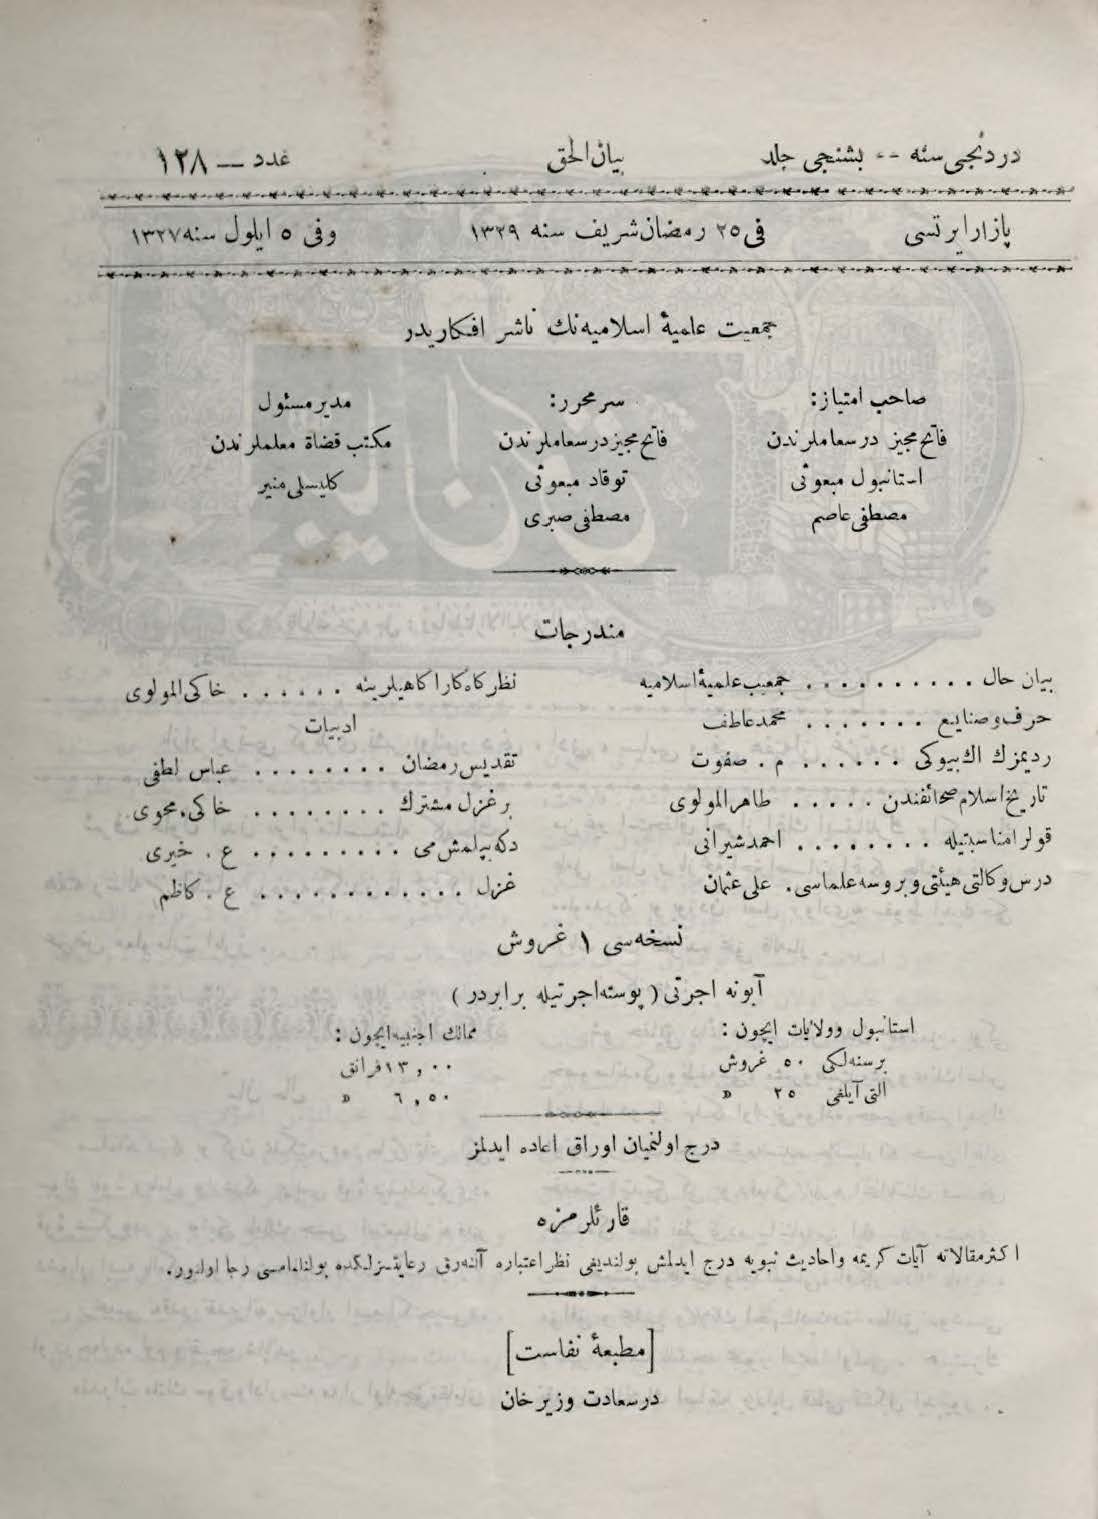 دردنجی سنه -- بشنجی جلد بیان الحق عدد — ١٢٨
پازار ایرتسی فی ٢٥ رمضان شریف سنه ١٣٢٩ وفی ٥ ایلول سنه ١٣٢٧
جمعیت علمیۀ اسلامیه نك ناشر افکاریدر
صاحب امتیاز:
فاتح مجیز درسعاملرندن
استانبول مبعوثی
مصطفی عاصم
سر محرر:
فاتح مجیز درسعاملرندن
توقاد مبعوثی
مصطفی صبری
مدیر مسئول
مکتب قضاة معلملرندن
کلیسلی منیر
مندرجات
بیان حال . . . . . . . . . . جمعیت علمیۀ اسلامیه
حرف و صنایع . . . . . . . محمد عاطف
ردیمزك اك بیوکی . . . . . . م . صفوت
تاریخ اسلام صحائفندن . . . . . طاهر المولوی
قولرا مناسبتیله . . . . . . . . احمد شیرانی
درس وکالتی هیئتی و بروسه علماسی . علی عثمان
نظرکاه کارآکاهیلرینه . . . . . . خاکی المولوی
ادبیات
تقدیس رمضان . . . . . . . . عباس لطفی
بر غزل مشترك . . . . . . . . خاکی ، محوی
دکه بیلمش می . . . . . . . . . ع . خیری
غزل . . . . . . . . . . . . ع . کاظم
نسخه سی ١ غروش
آبونه اجرتی ( پوسته اجرتیله برابردر )
استانبول وولایات ایچون :
بر سنه لکی ٥٠ غروش
التی آیلغی ٢٥ »
ممالك اجنبیه ایچون :
١٣,٠٠ فرانق
٦,٥٠ »
درج اولنمیان اوراق اعاده ایدلمز
قارئلرمزه
اکثر مقالاته آیات کریمه واحادیث نبویه درج ایدلمش بولندیغی نظر اعتباره آلنه رق رعایتسزلکده بولنلمامسی رجا اولنور.
[مطبعۀ نفاست]
درسعادت وزیر خان